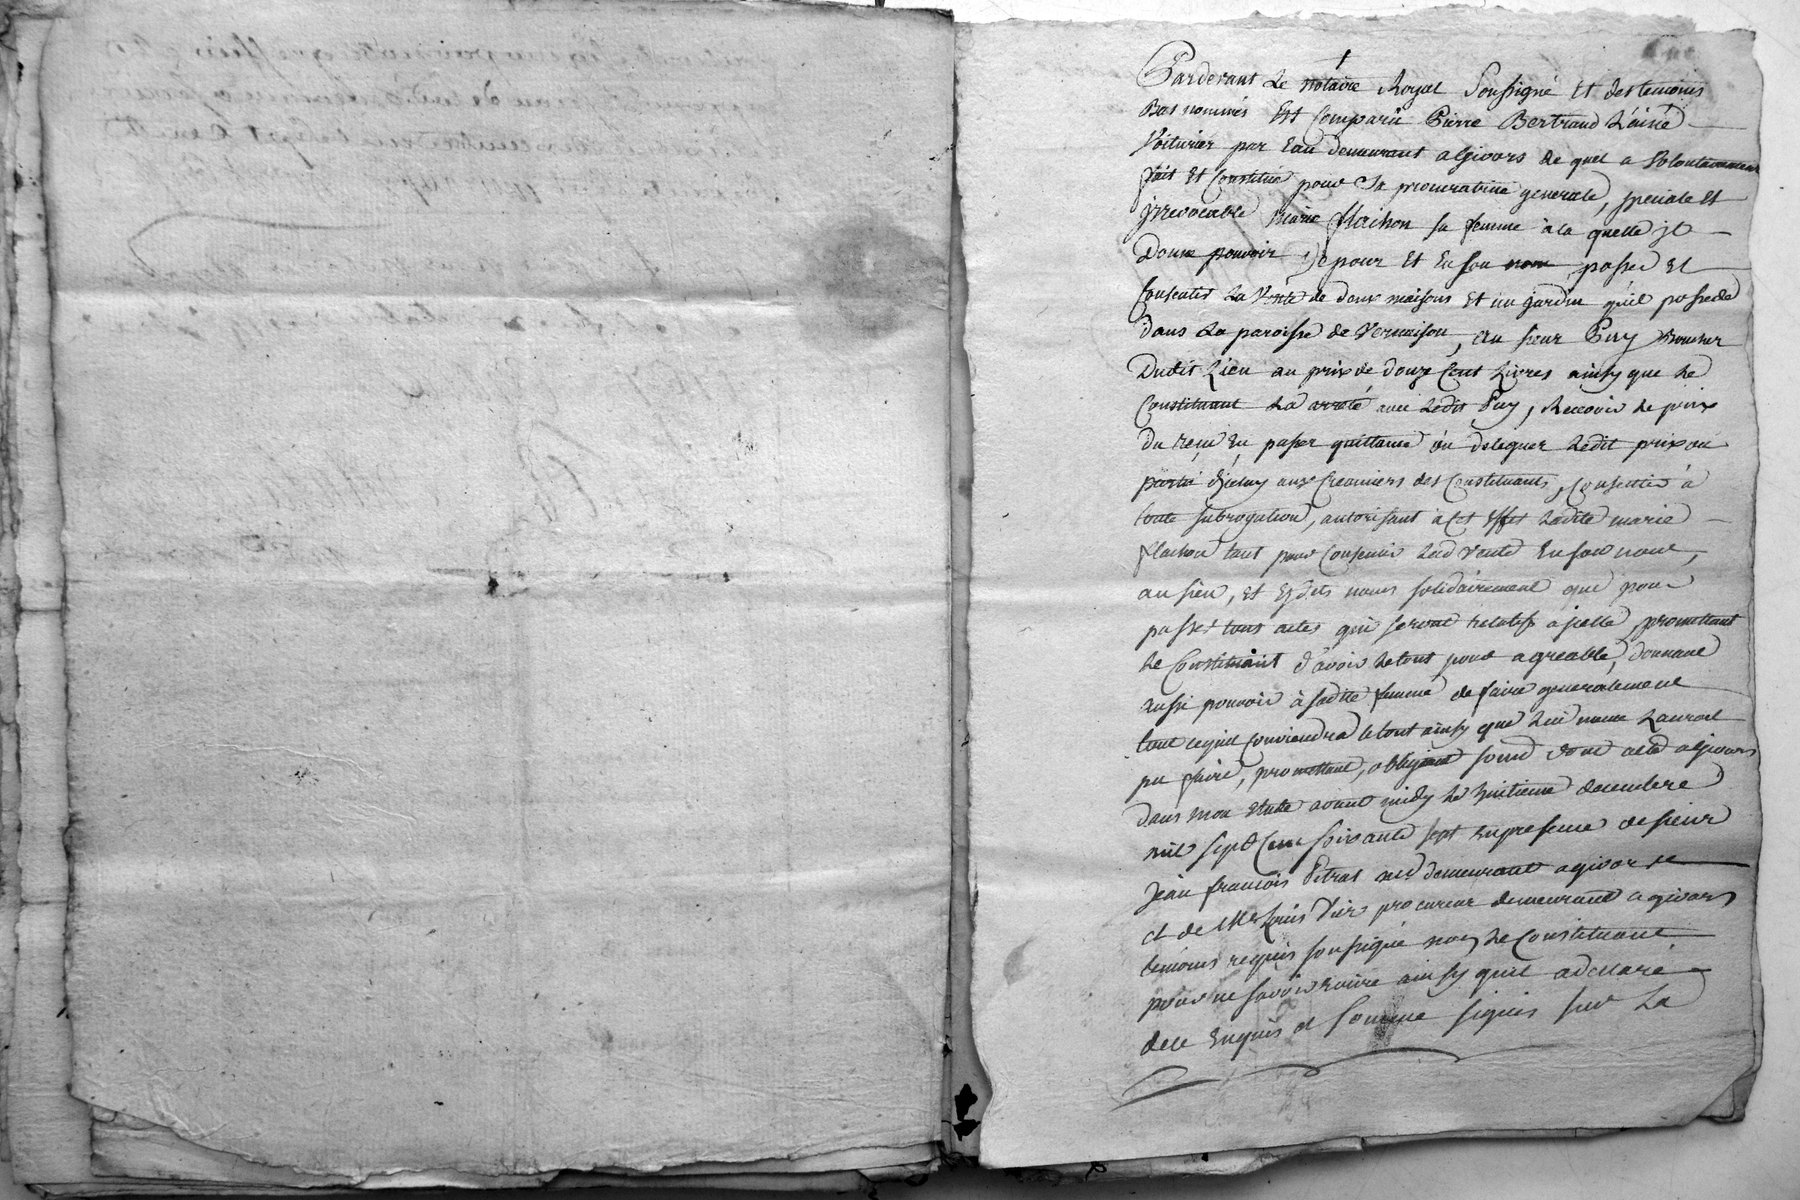 Pardevant Le notaire Royal Soussigné Et des temoins
Bas nommés Est Comparu Pierre Bertrand L'ainé
Voiturier par Eau demeurant a Givors Le quel a Volontairement
fait Et Constitué pour Sa procuratrice generale, speciale Et
jrrevocable Marie flachon sa femme à la quelle jl
Donne pouvoir de pour Et En son nom passer Et
Consentir La Vente de deux maisons Et un jardin qu'il possede
dans La paroisse de Vernaison, au sieur Puy
Dudit Lieu au prix de douze Cent Livres ainsy que Le
Constituant La arreté avec Ledit Puy, Recevoir Le prix
du reçu En passer quittance ou deleguer Ledit prix ou
partie d'jceluy aux Creanciers des Constituants, Consentir à
toute subrogation, autorisant a Cet Effet Ladite marie
flachon tant pour Consentir Lad Vente En son nom,
au sien, Et Esdits noms solidairement que pour
passer tous actes qui seront relatifs a jcelle, promettant
Le Constituant d'avoir Le tout pour agreable, donnant
aussi pouvoir à sadite femme de faire generalement
tout ce qu'il Conviendra le tout ainsy que Lui meme Lauroit
pu faire, promettant, obligeant soumd dont acte a Givors
dans mon Etude avant midy Le huitieme decembre
mil sept Cent soixante sept En presence de sieur
Jean francois Pitrat demeurant a givors
et de Me Louis procureur demeurant a givors
temoins requis soussignés non Le Constituant
pour ne savoir ecrire ainsy quil a declaré
dece Enquis et sommé signés sur La